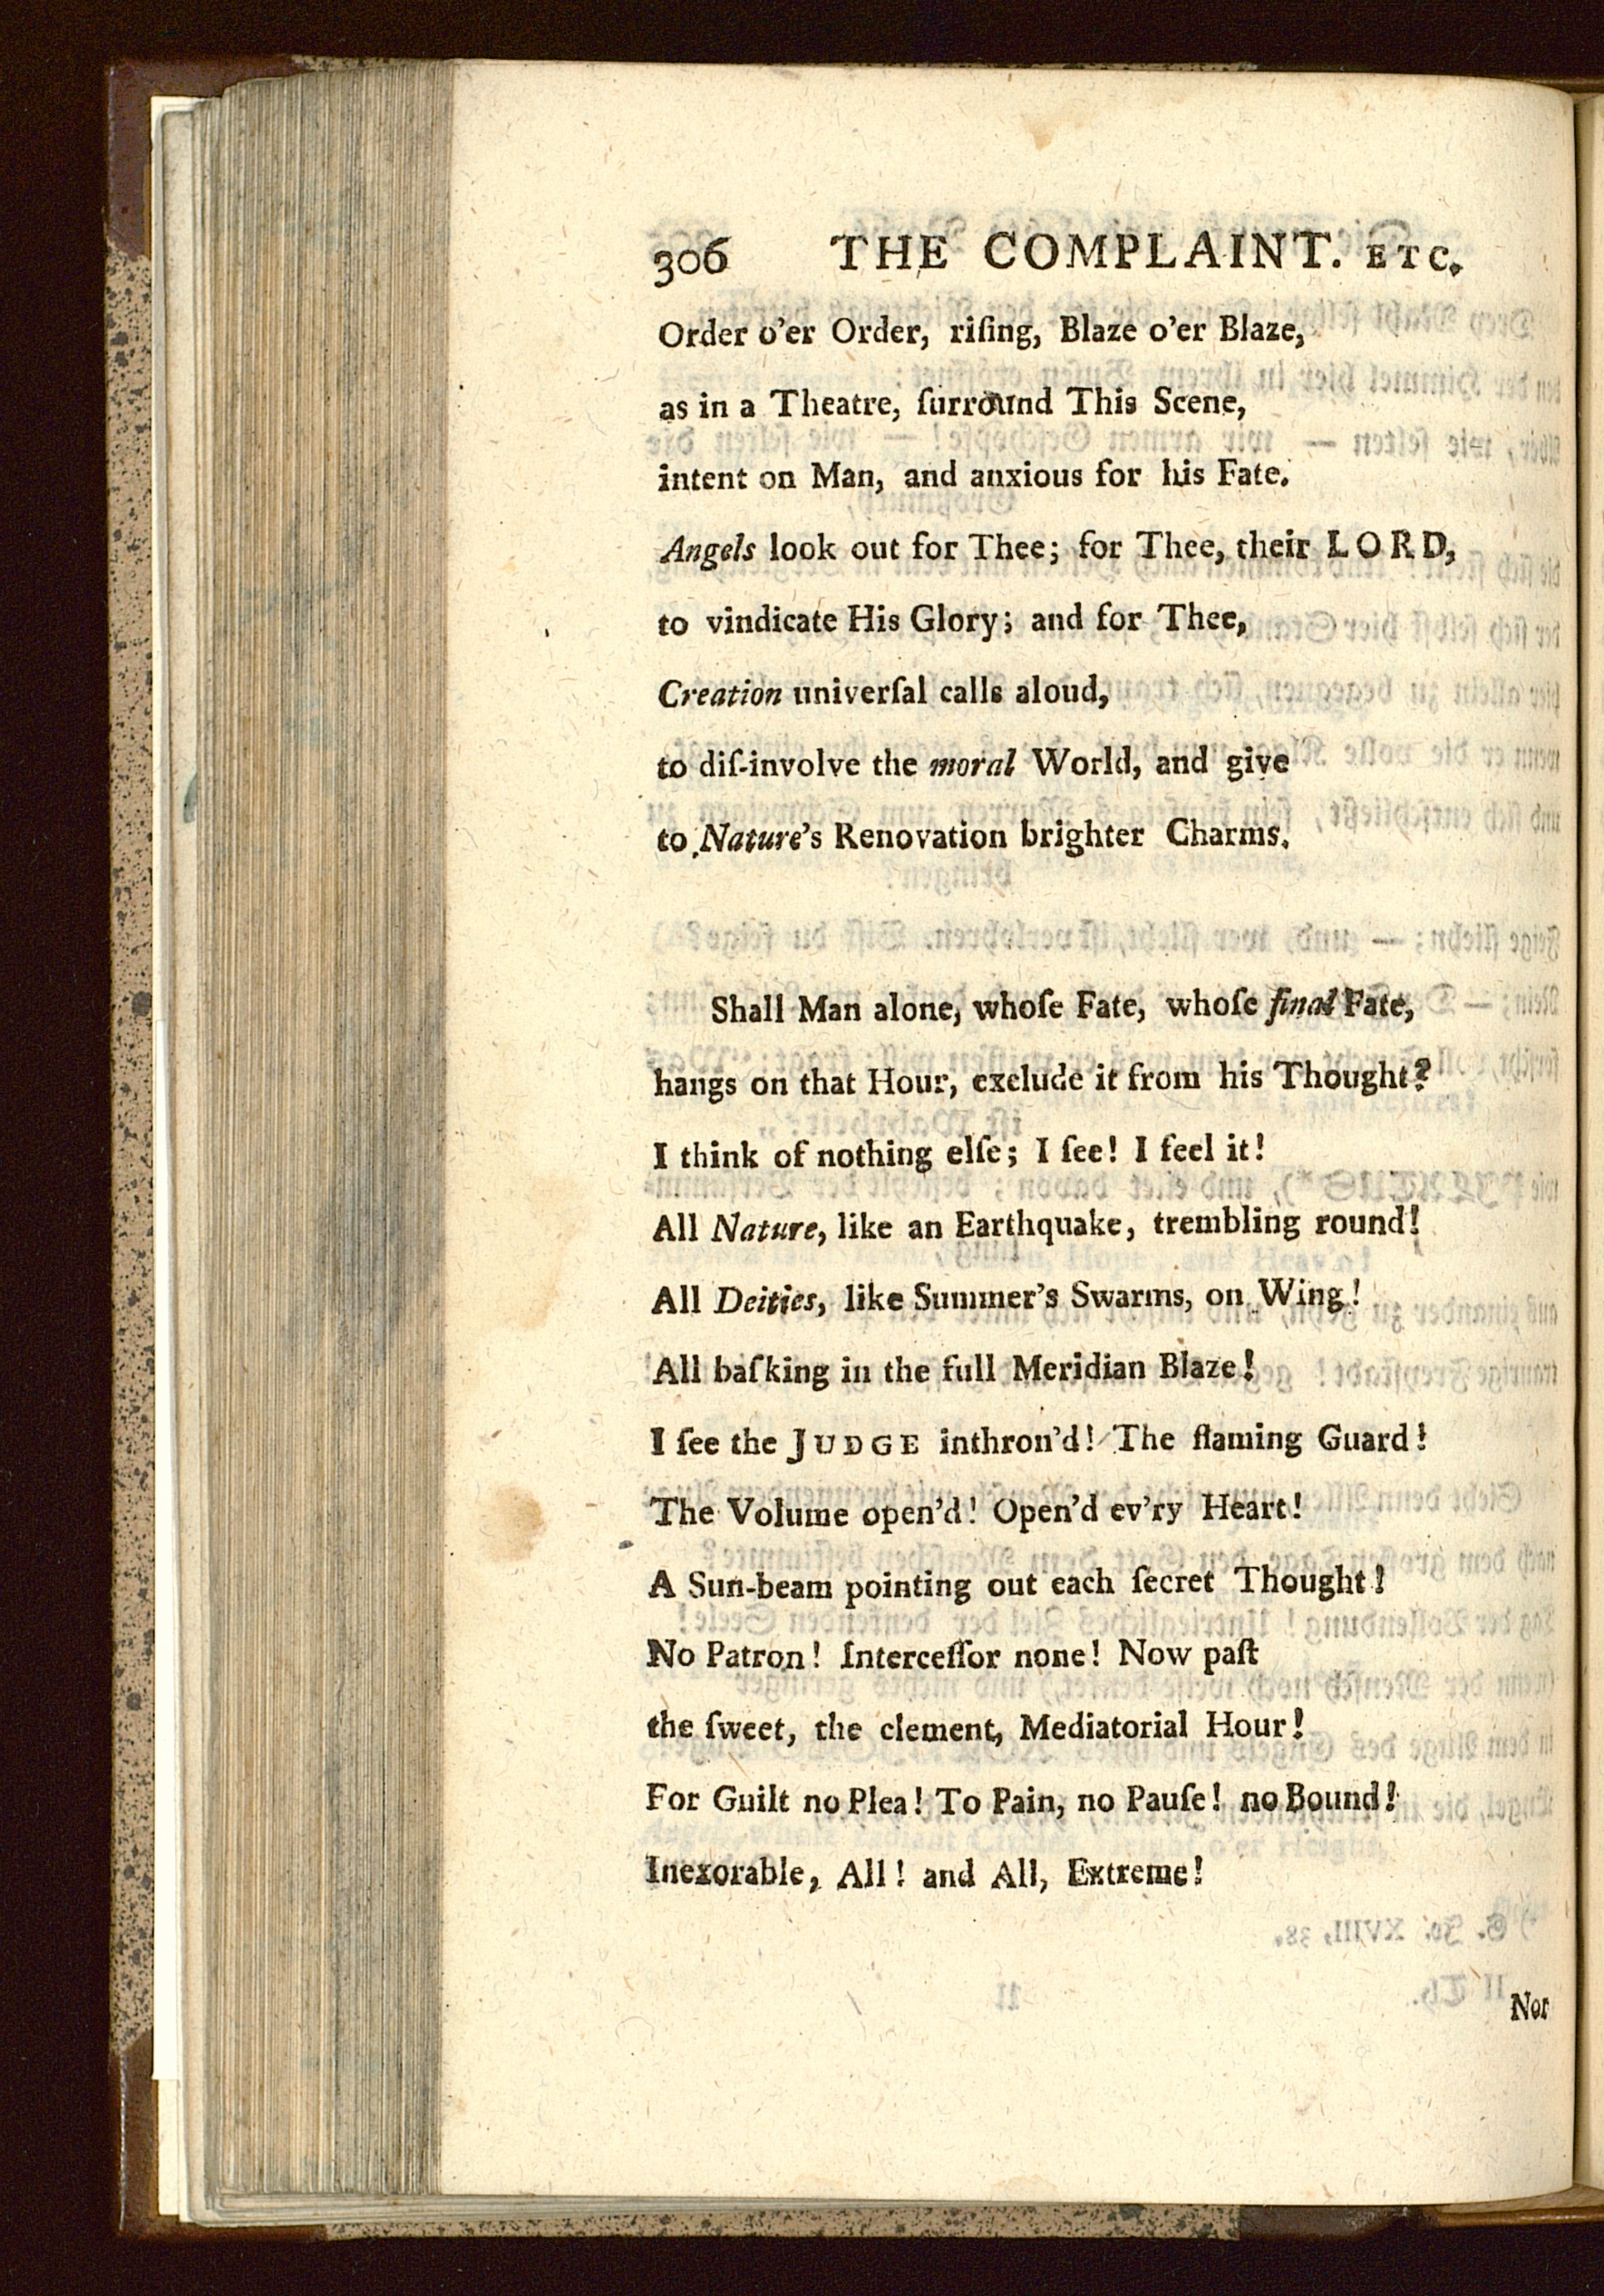 306 THE COMPLAINT. ETC.
Order o'er Order, riſing, Blaze o'er Blaze,
as in a Theatre, ſurround This Scene,
intent on Man, and anxious for his Fate.
Angels look out for Thee; for Thee, their LORD,
to vindicate His Glory; and for Thee,
Creation univerſal calls aloud,
to diſ-involve the moral World, and give
to Nature's Renovation brighter Charms.
Shall Man alone, whoſe Fate, whoſe final Fate,
hangs on that Hour, exclude it from his Thought?
I think of nothing elſe; I ſee! I feel it!
All Nature, like an Earthquake, trembling round!
All Deities, like Summer's Swarms, on Wing!
All baſking in the full Meridian Blaze!
I ſee the JUDGE inthron'd! The flaming Guard!
The Volume open'd! Open'd ev'ry Heart!
A Sun-beam pointing out each ſecret Thought!
No Patron! Interceſſor none! Now paſt
the ſweet, the clement, Mediatorial Hour!
For Guilt no Plea! To Pain, no Pauſe! no Bound!
Inexorable, All! and All, Extreme!
Nor